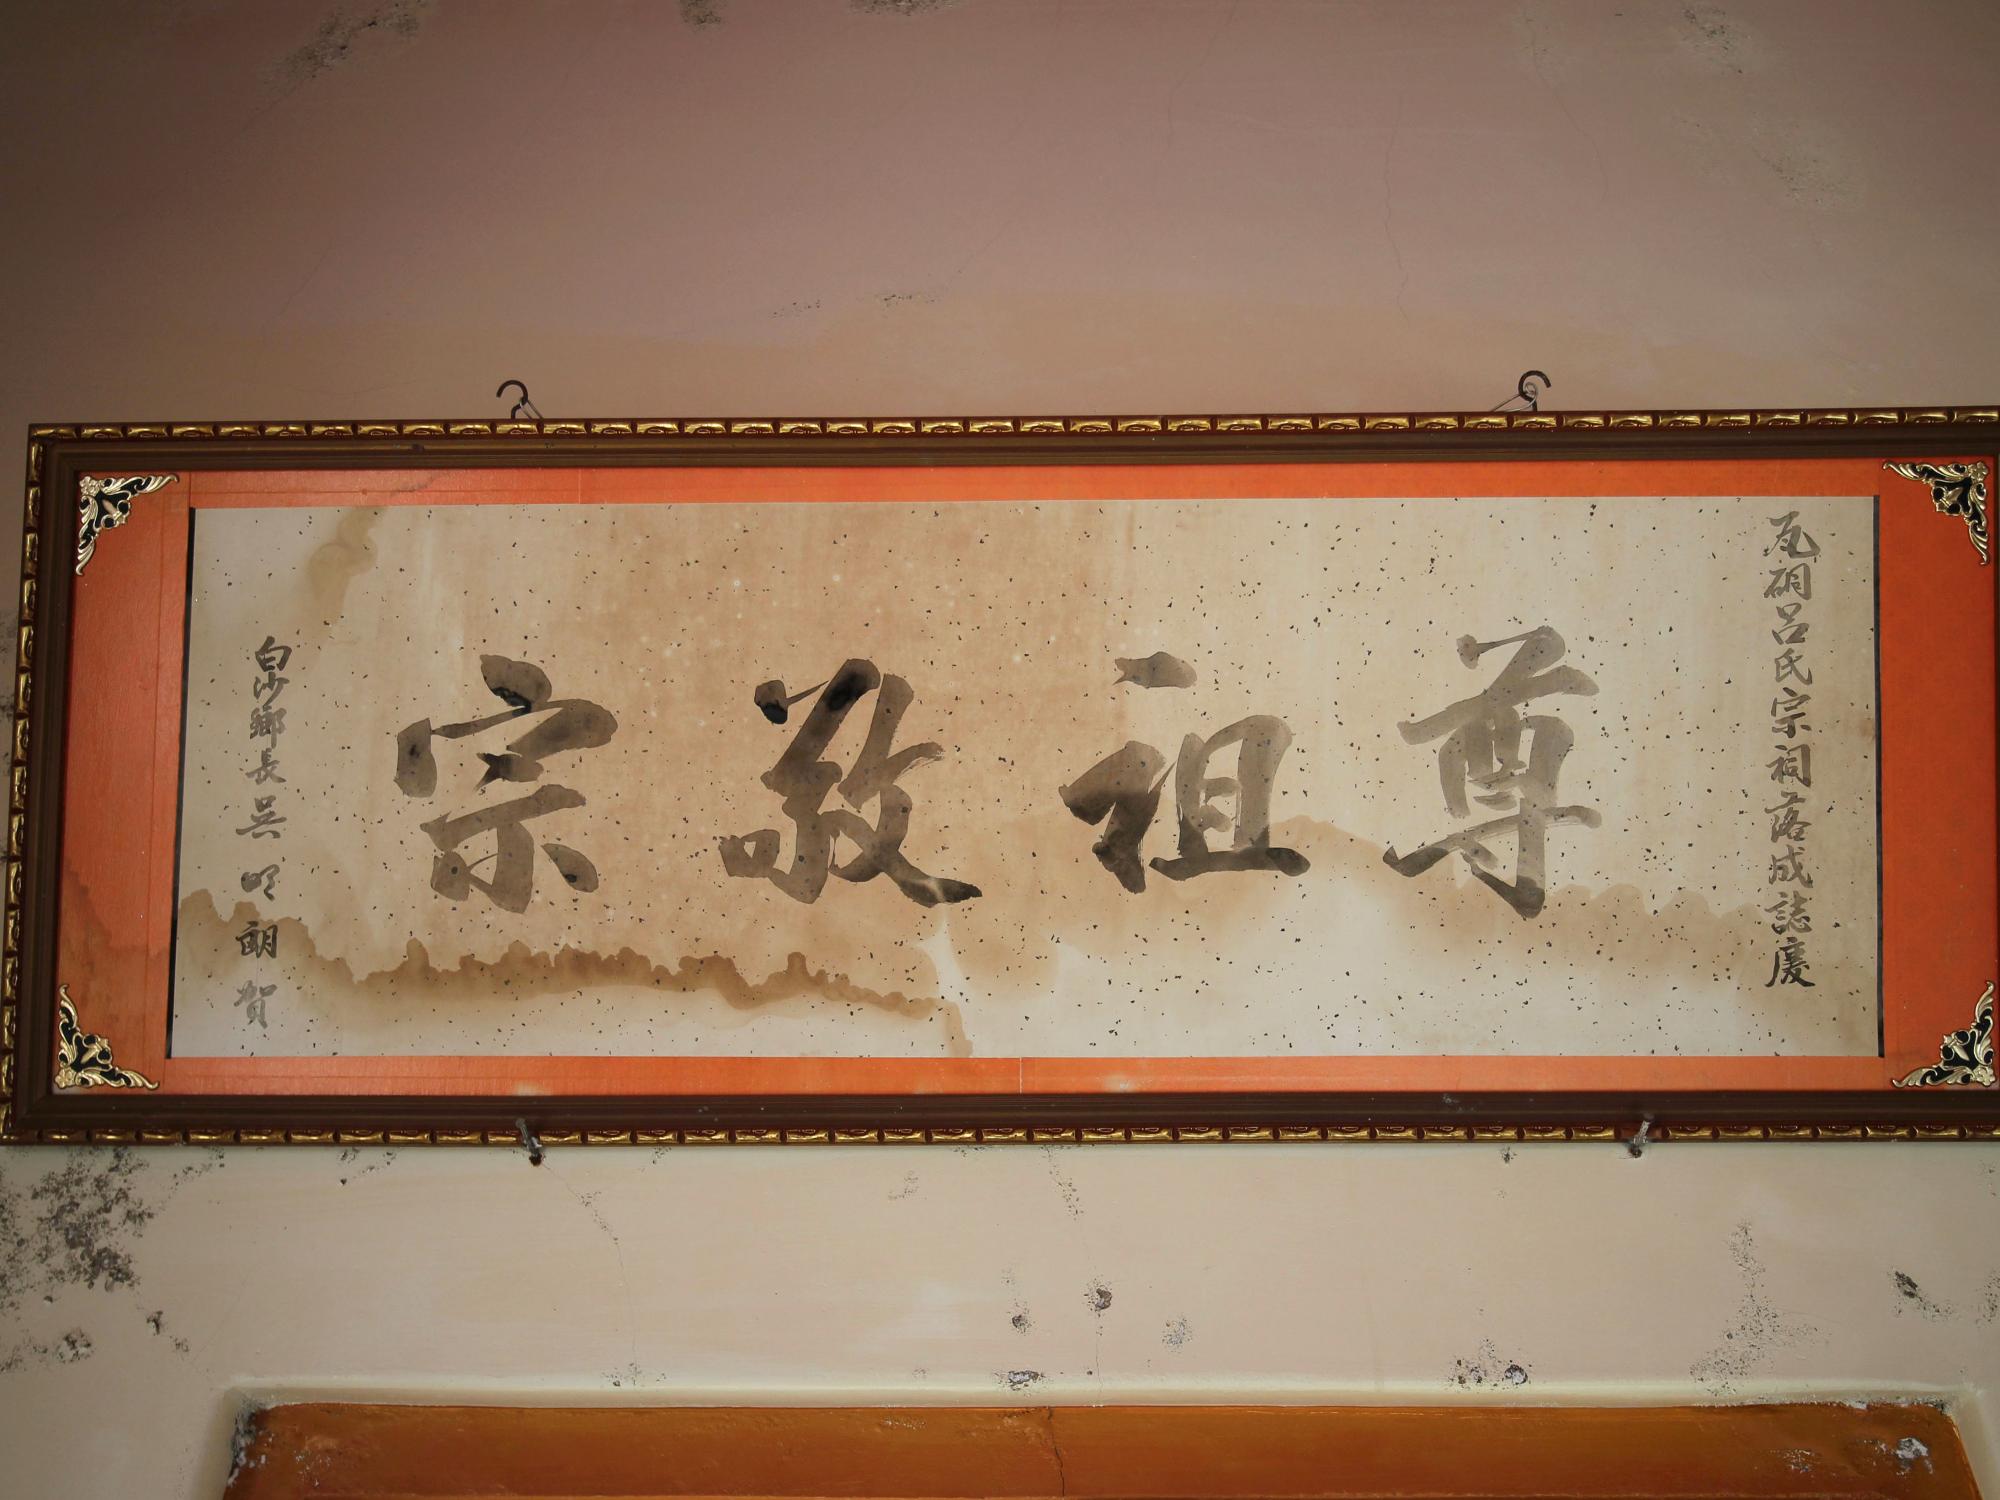 瓦硐呂氏宗祠落成誌慶
尊祖敬宗
白沙鄉長吳明朗賀